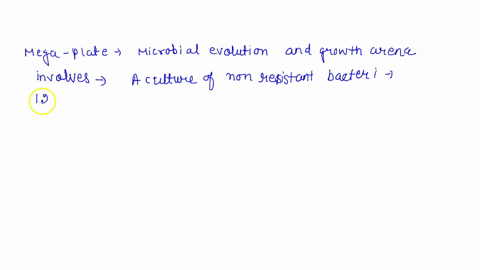 Mega-plate → Microbial evolution and growth arena
involves → A culture of non resistant bacteri →
is